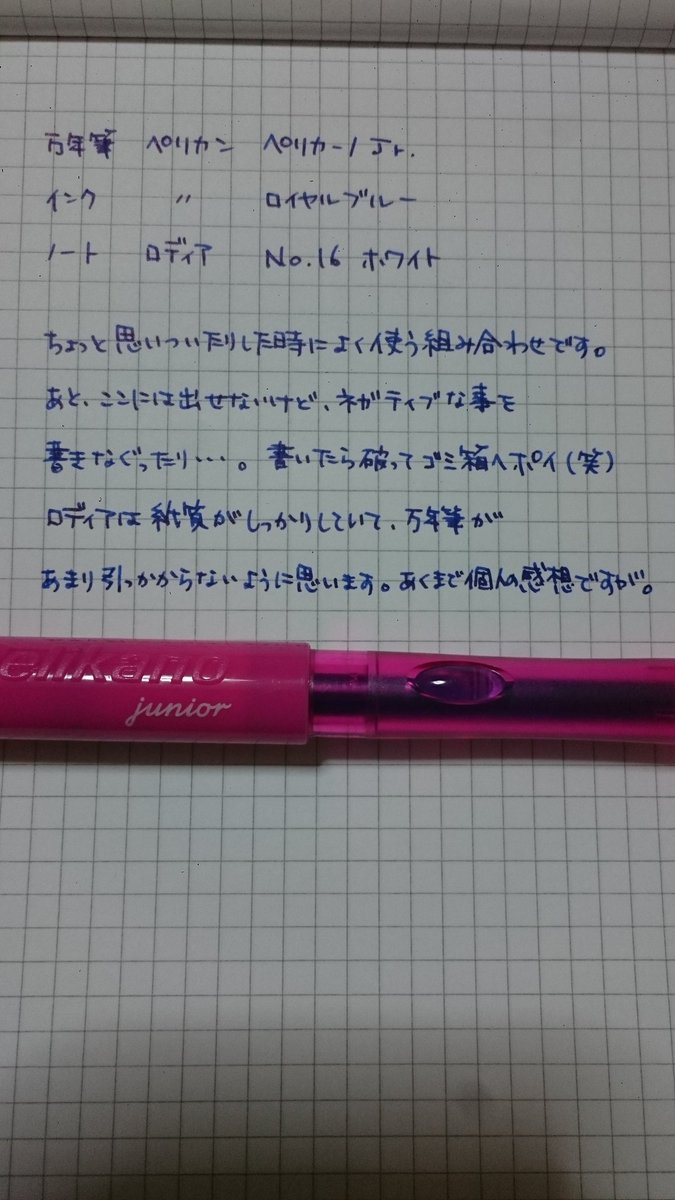 万年筆 ペリカン ペリカーノ Jr.
インク 〃 ロイヤルブルー
ノート ロディア No.16 ホワイト
ちょっと思いついたりした時によく使う組み合わせです。
あと、ここには出せないけど、ネガティブな事を
書きなぐったり・・・。書いたら破ってゴミ箱へポイ(笑)
ロディアは紙質がしっかりしていて、万年筆が
あまり引っかからないように思います。あくまで個人の感想ですが。
elikano
junior